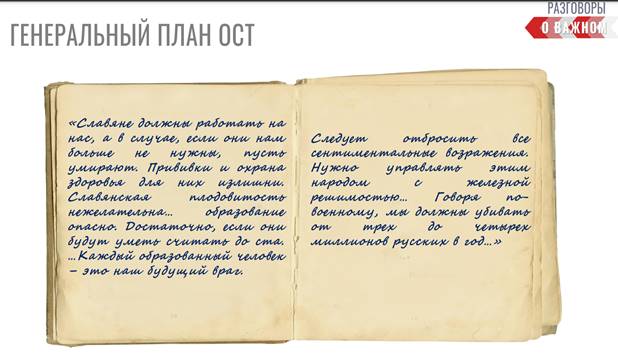 РАЗГОВОРЫ
О ВАЖНОМ
ГЕНЕРАЛЬНЫЙ ПЛАН ОСТ
«Славяне должны работать на
нас, а в случае, если они нам
больше не нужны, пусть
умирают. Прививки и охрана
здоровья для них излишни.
Славянская плодовитость
нежелательна... образование
опасно. Достаточно, если они
будут уметь считать до ста.
...Каждый образованный человек
– это наш будущий враг.
Следует отбросить все
сентиментальные возражения.
Нужно управлять этим
народом с железной
решимостью... Говоря по-
военному, мы должны убивать
от трех до четырех
миллионов русских в год...»